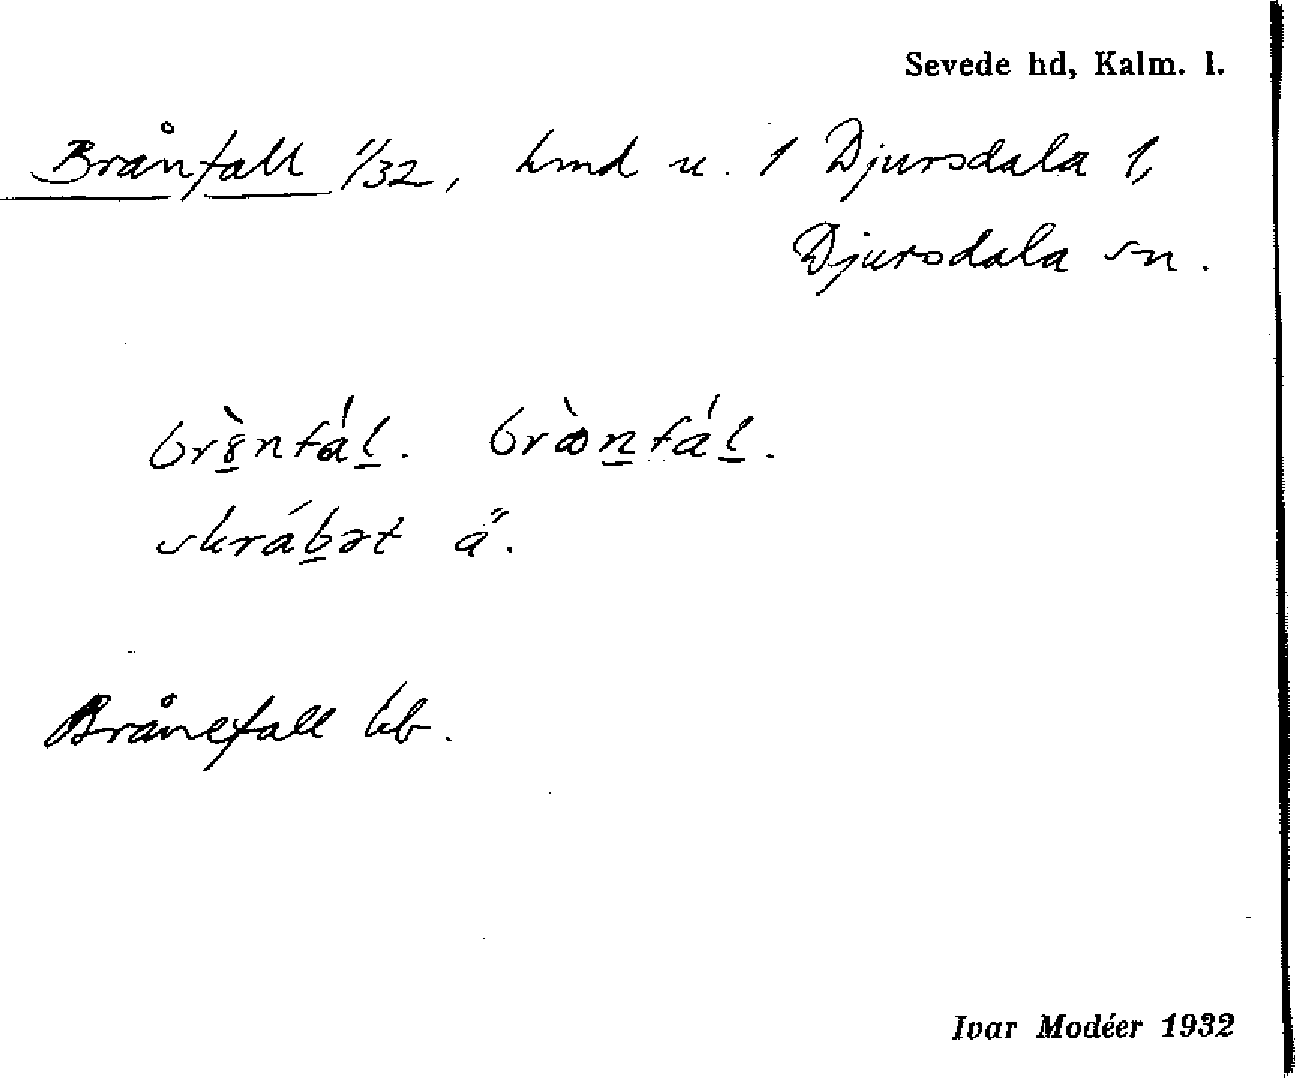 Sevede hd, Kalm. l.
Brånfall 1/32, hmd u. 1 Djursdala 1,
Djursdala sn.
skrábət ä̋.
Brånefall kb.
Ivar Modéer 1932